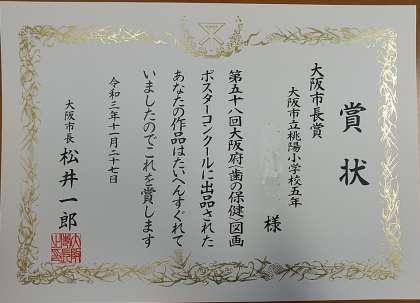 賞状
大阪市長賞
大阪市立桃陽小学校五年
様
第五十八回大阪府「歯の保健」図画
ポスターコンクールに出品された
あなたの作品はたいへんすぐれて
いましたのでこれを賞します
令和三年十一月二十七日
大阪市長 松井一郎